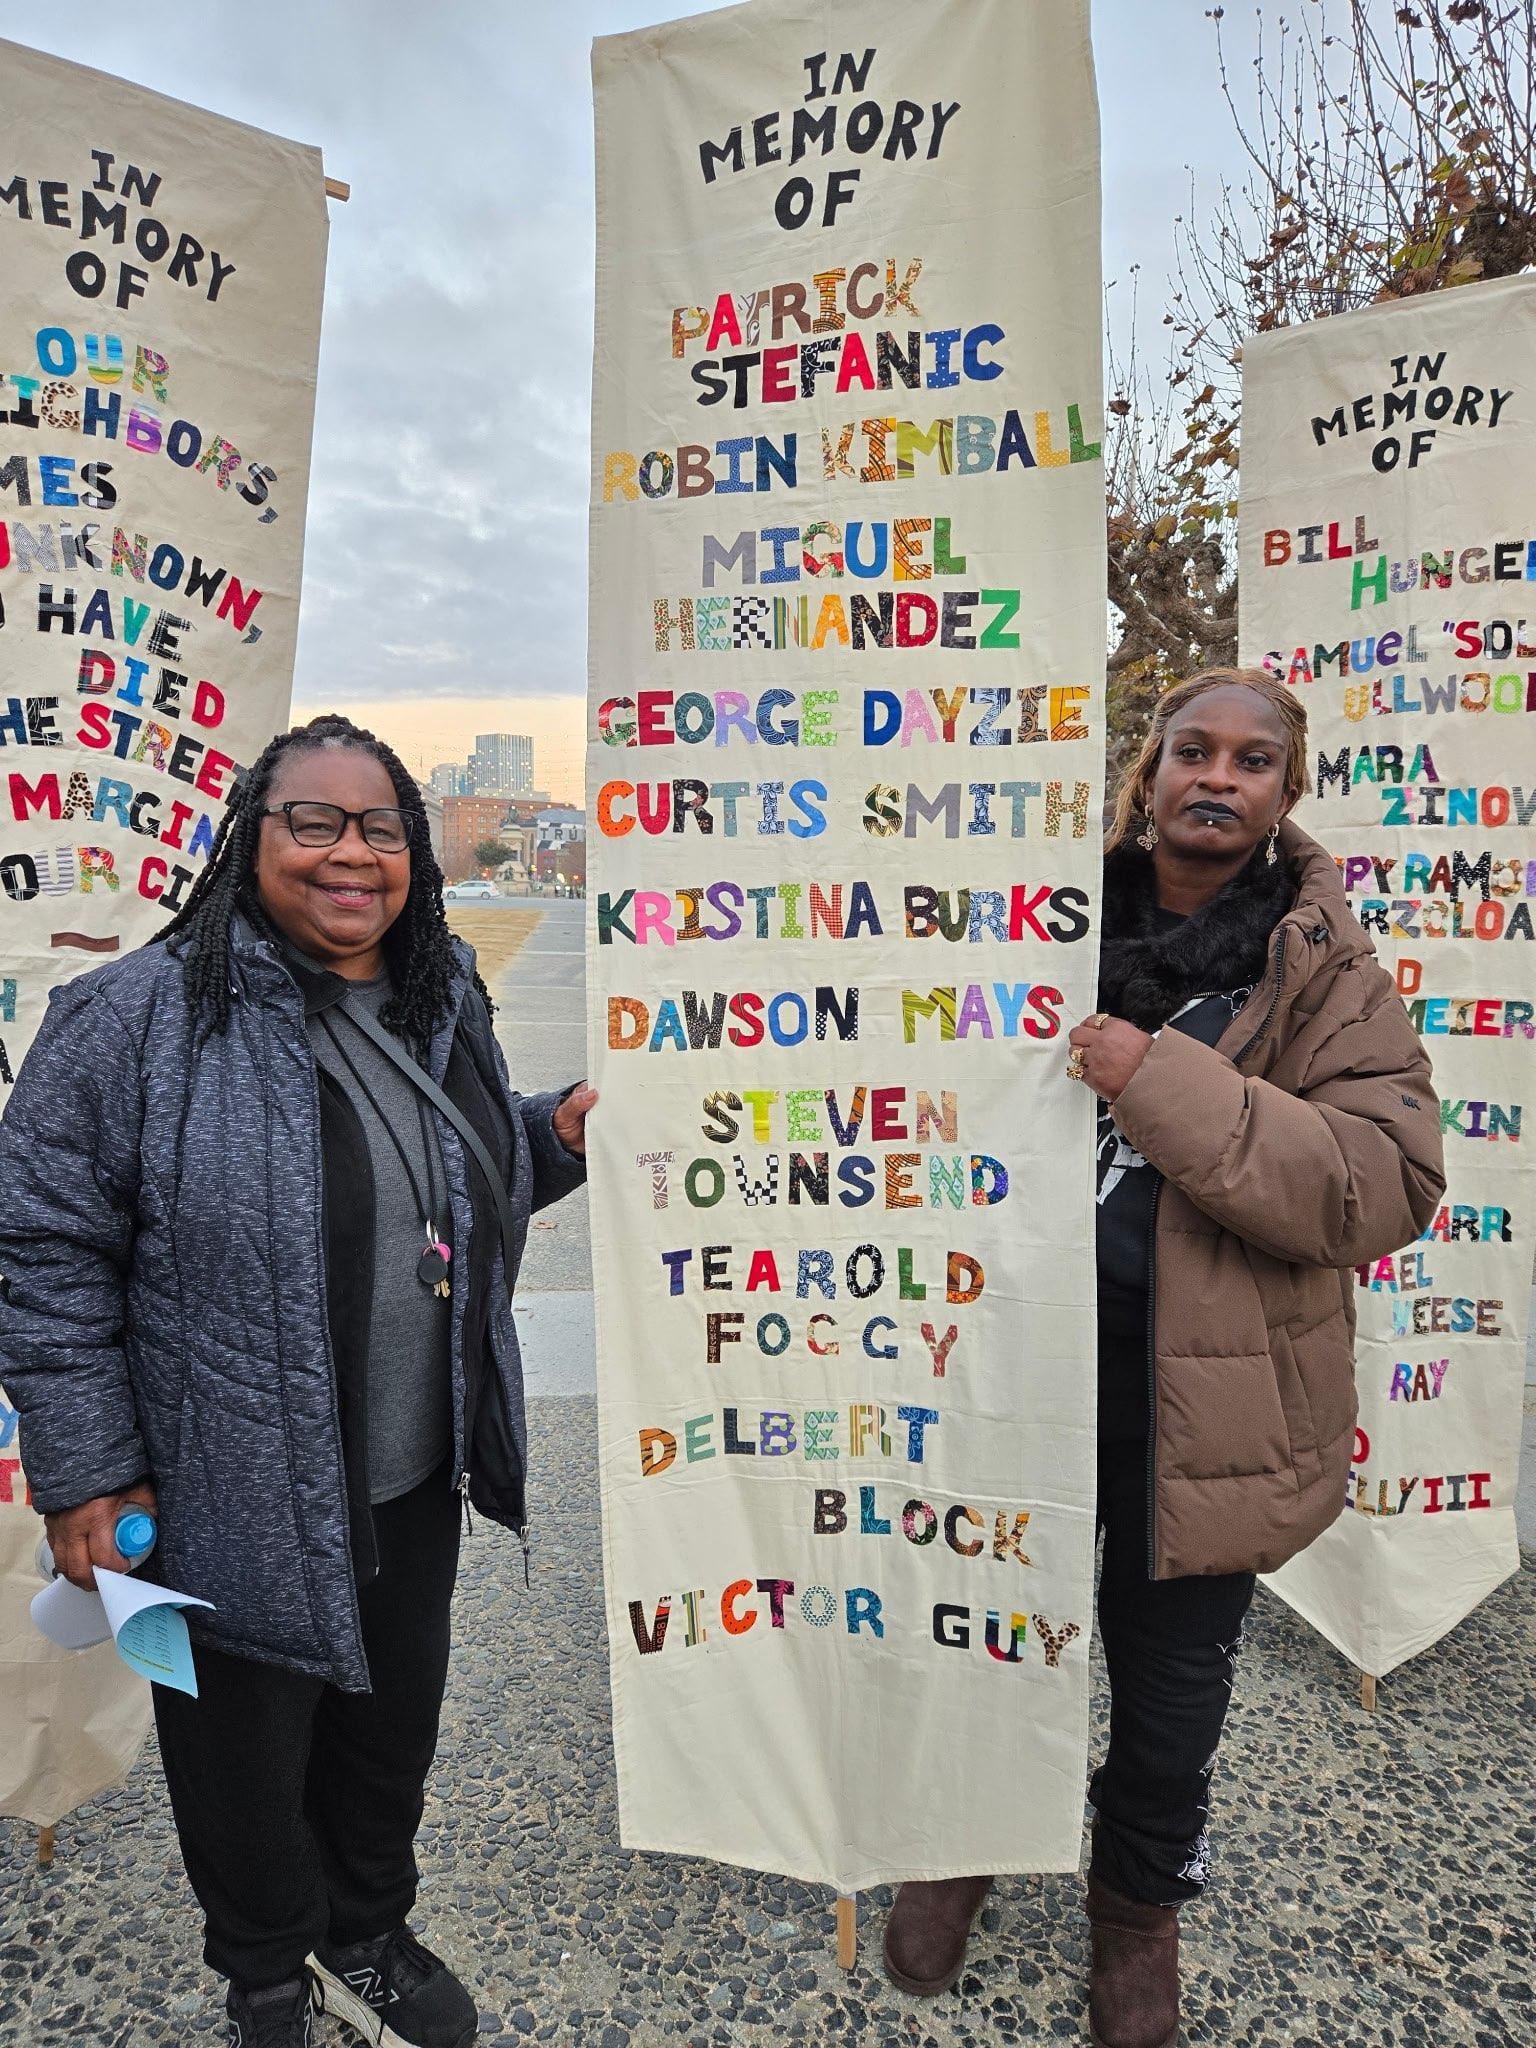 IN
MEMORY
OF
OUR
MES
UNKNOWN,
HAVE
DIED
HE STREE
MARGIN
OUR CI
IN
MEMORY
OF
PATRICK
STEFANIC
ROBIN KIMBALL
MIGUEL
HERNANDEZ
GEORGE DAYZIE
CURTIS SMITH
KRISTINA BURKS
DAWSON MAYS
STEVEN
TOWNSEND
TEAROLD
FOGGY
DELBERT
BLOCK
VICTOR GUY
IN
MEMORY
OF
BILL
HUNGE
SAMUEL "SOL
ULLWOO
MARA
ZINOV
RAMO
RZCLOA
D
MEIER
KIN
ARR
AEL
WEESE
RAY
ELLY III
TRU